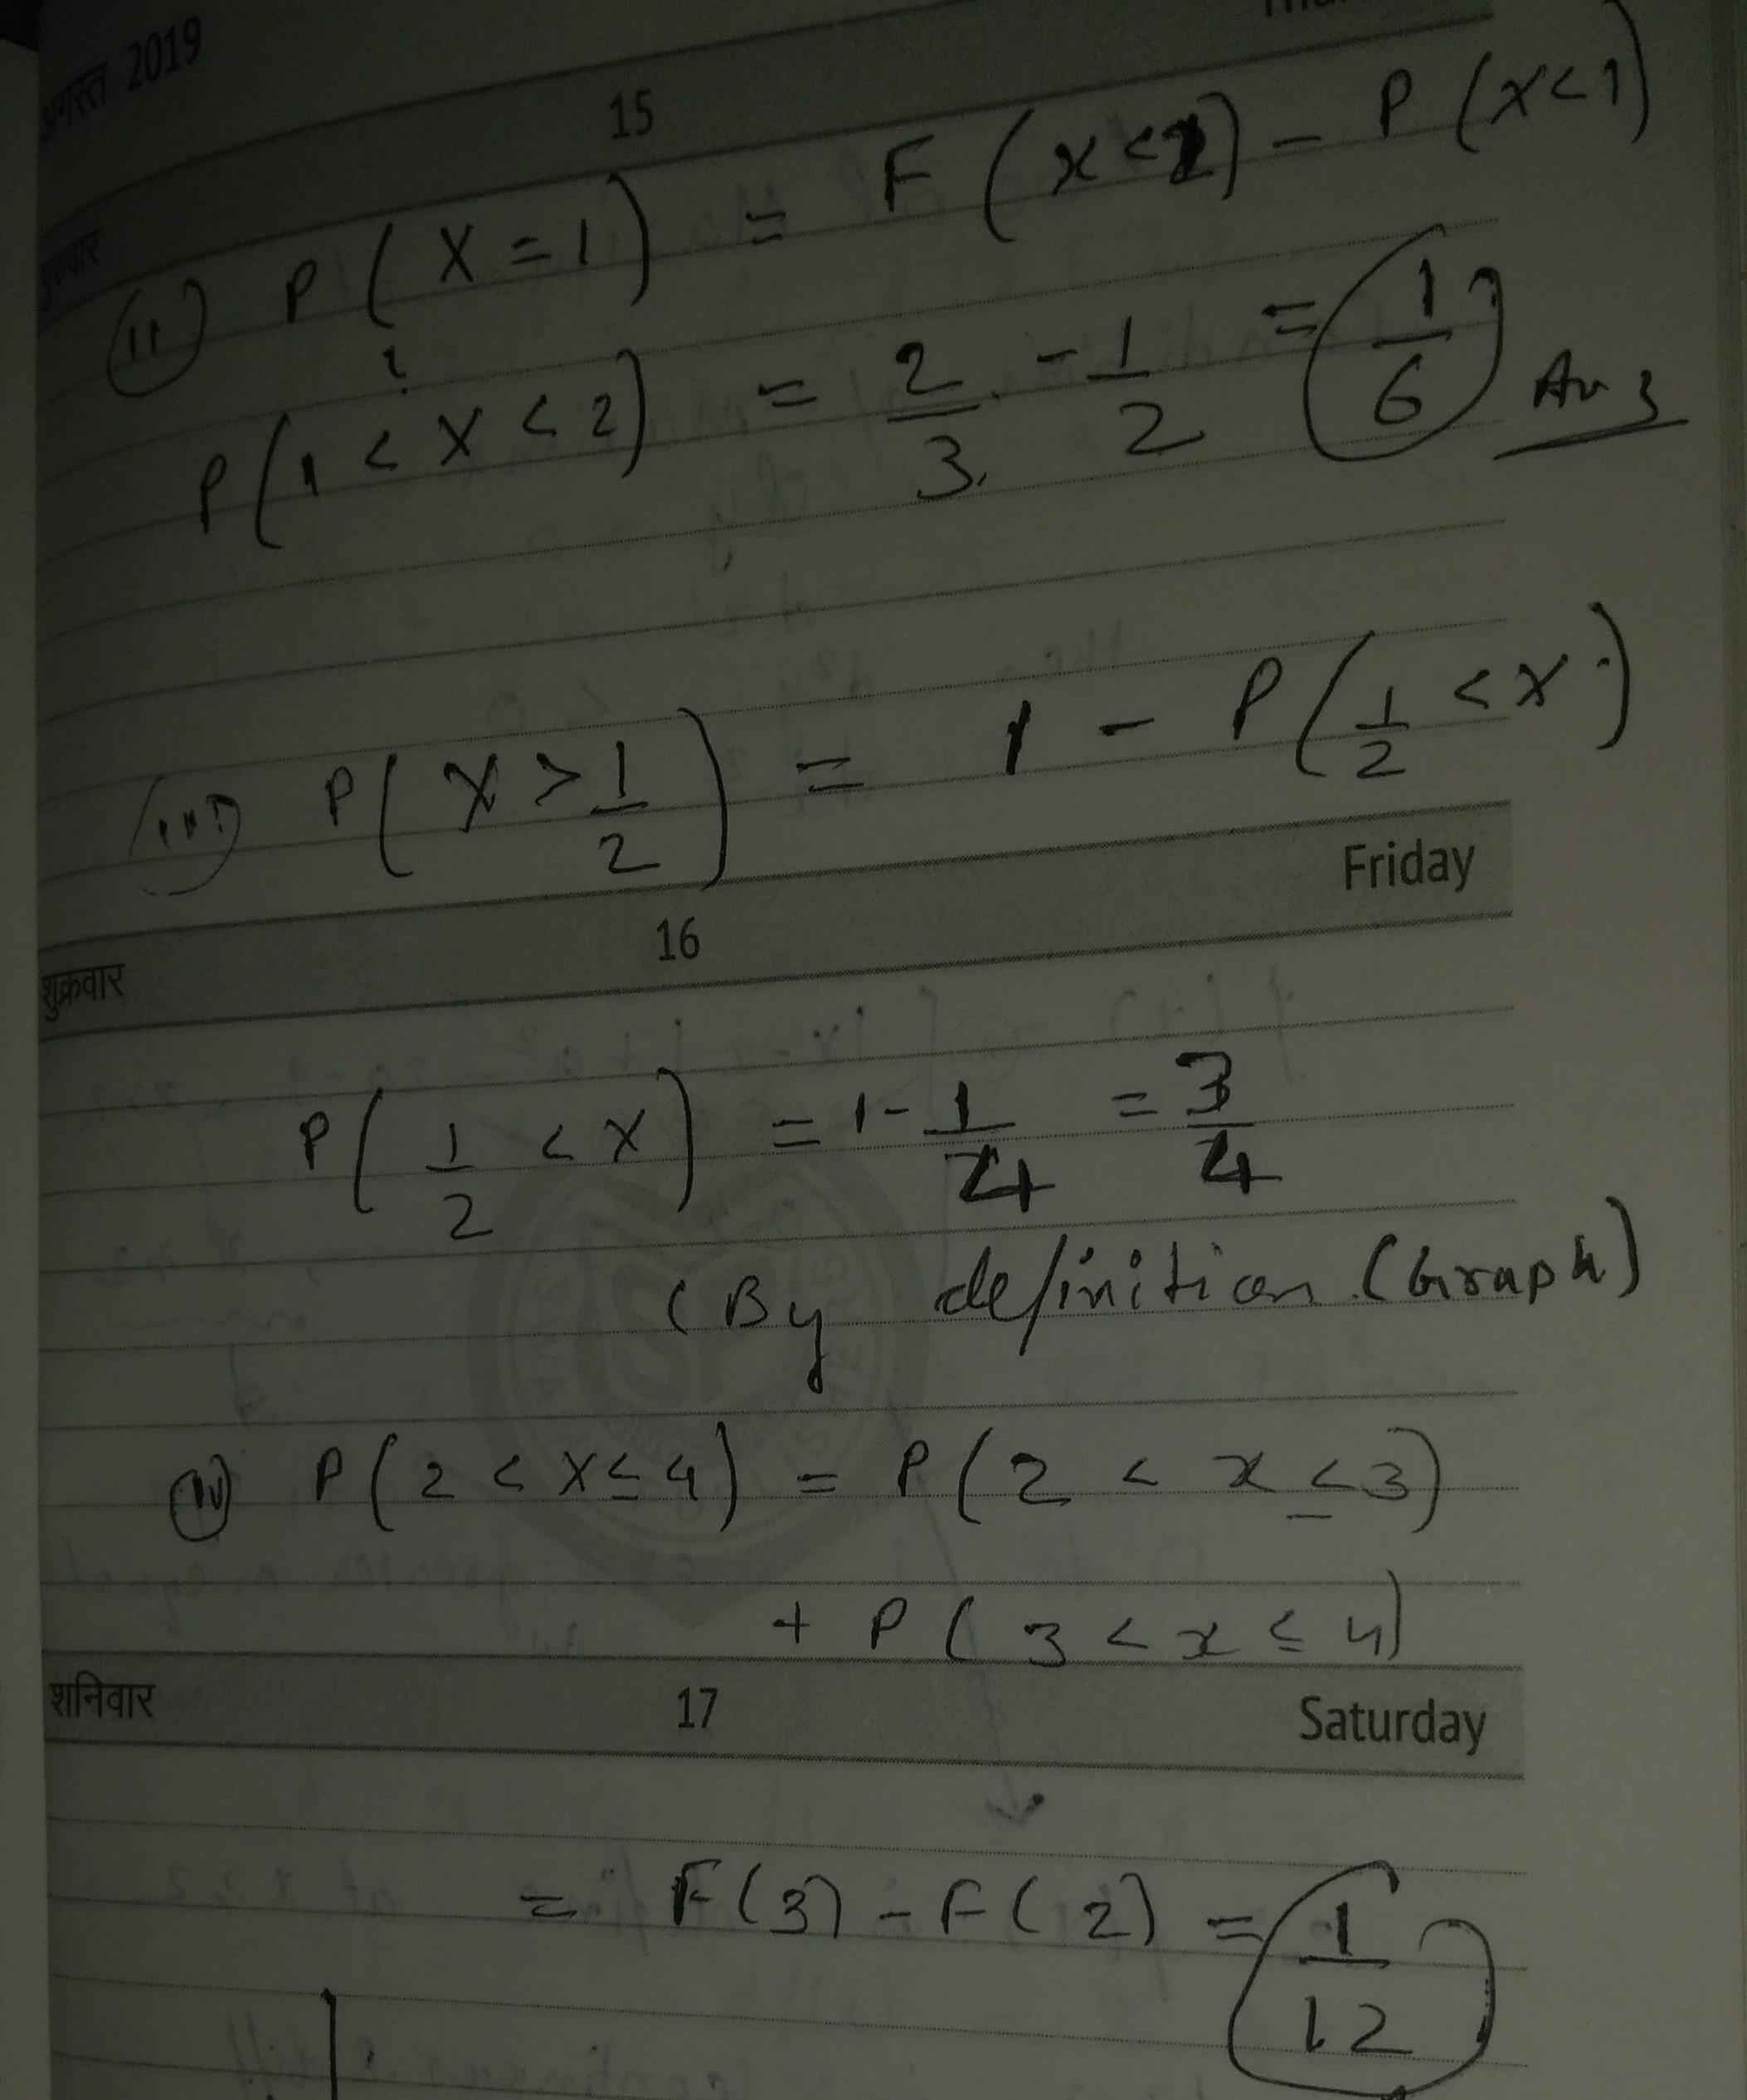 अगस्त 2019
15
गुरुवार
(ii) P(X=1) = F(x<2) - P(x<1)
P(1<X<2) = 2/3 - 1/2 = 1/6 Ans
(iii) P(X > 1/2) = 1 - P(1/2 < X)
शुक्रवार 16 Friday
P(1/2 < X) = 1 - 1/4 = 3/4
(By definition (Graph)
(iv) P(2 < X ≤ 4) = P(2 < x ≤ 3)
+ P(3 < x ≤ 4)
शनिवार 17 Saturday
= F(3) - F(2) = 1/12